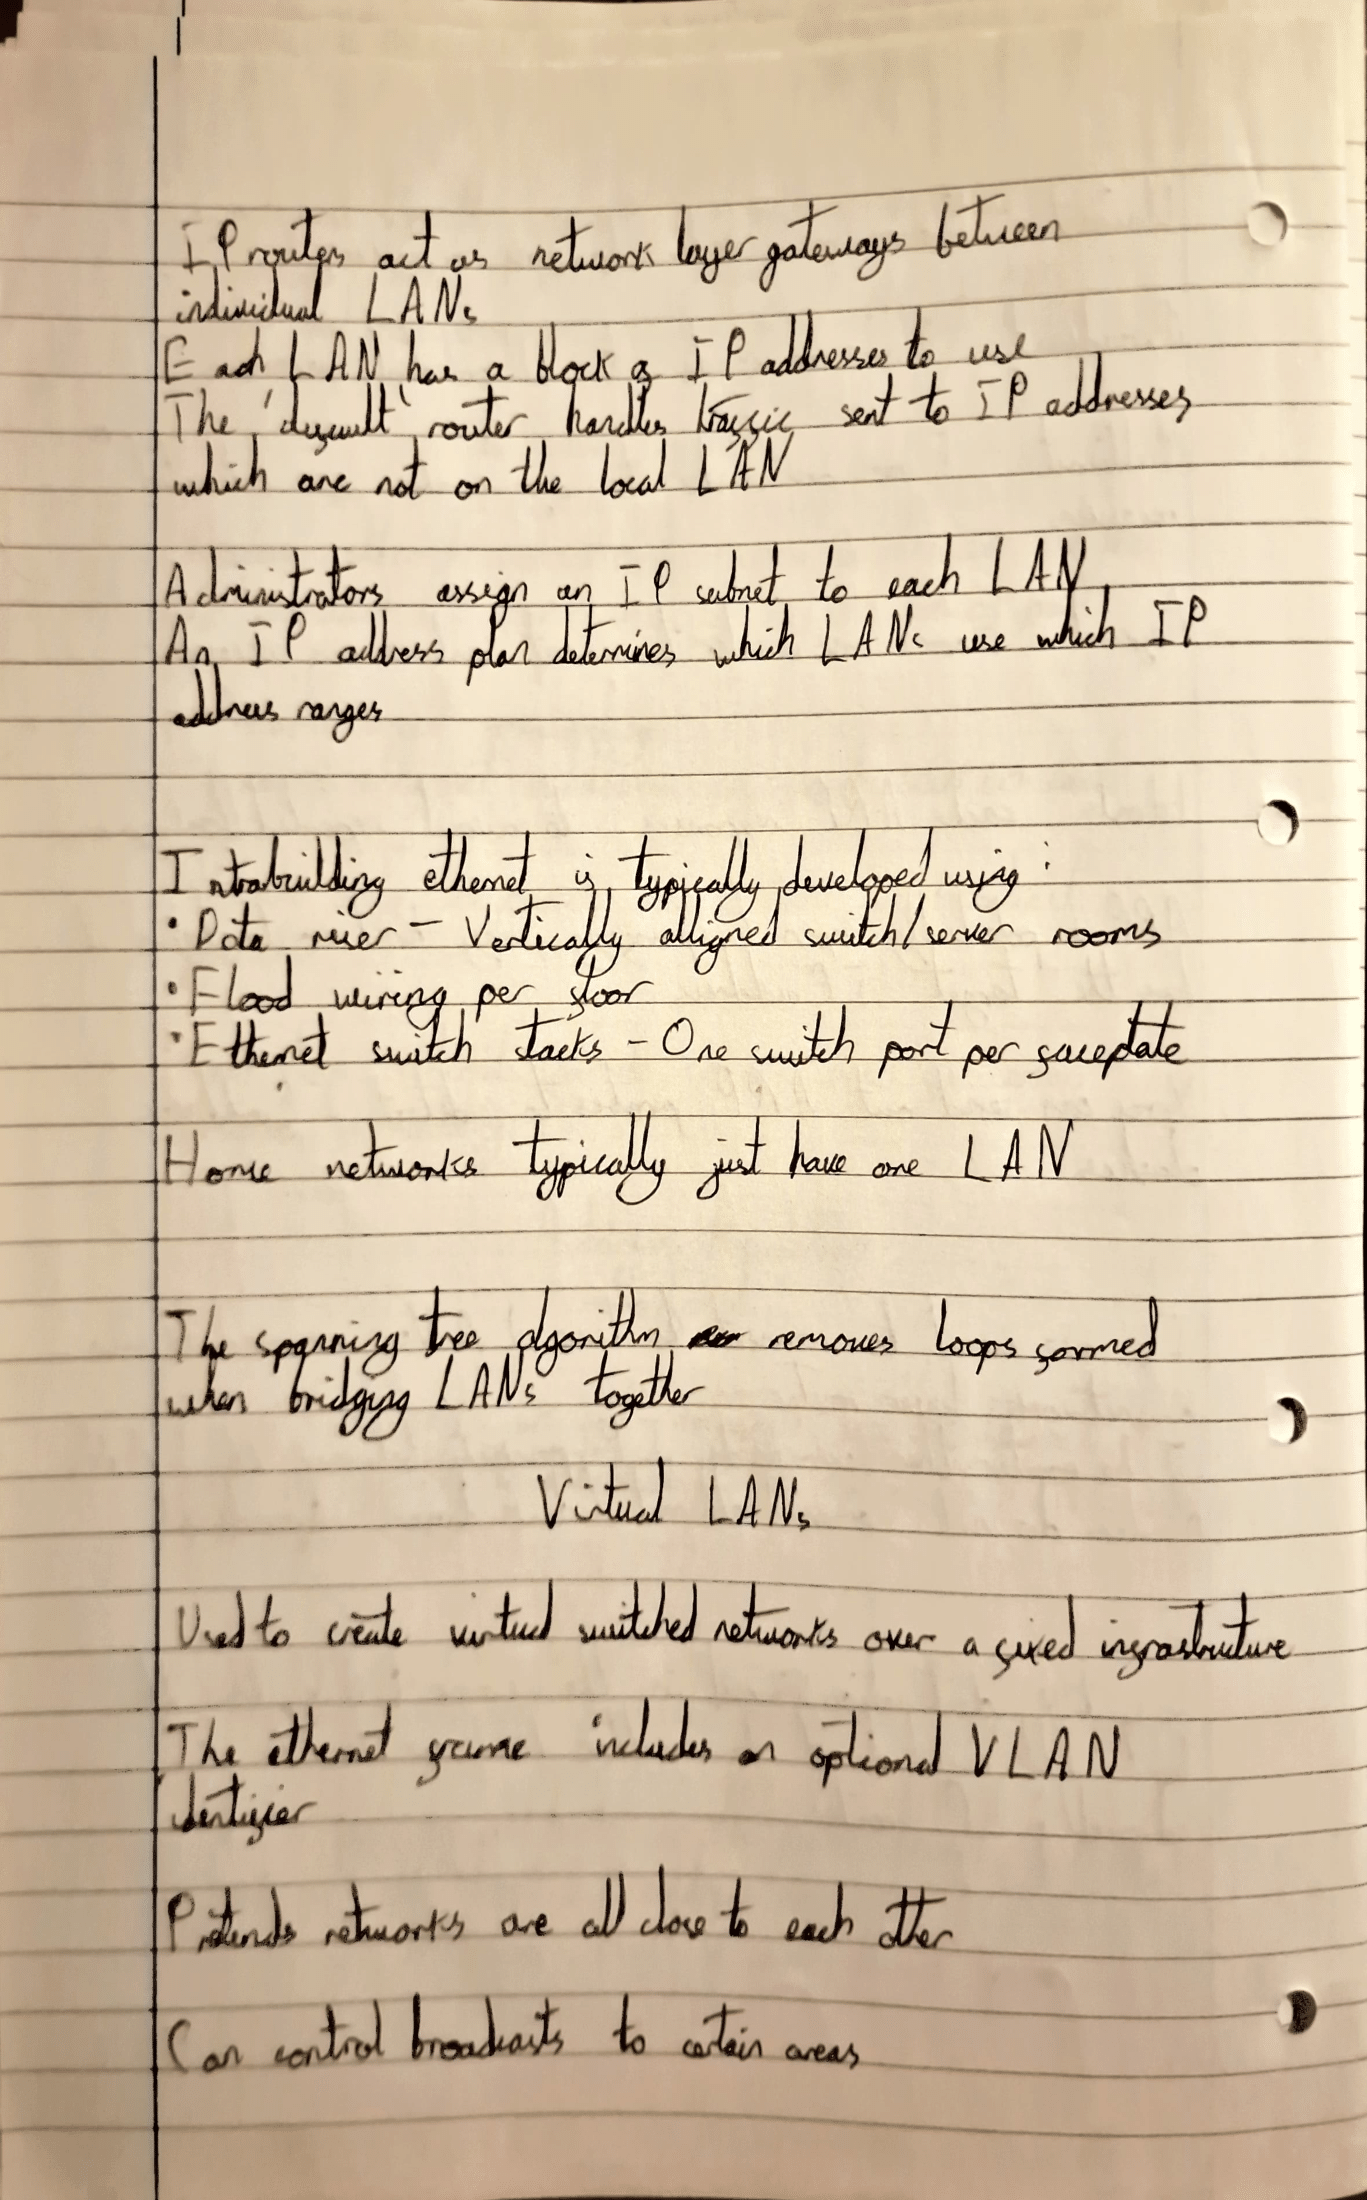 IP routers act as network layer gateways between
individual LANs
Each LAN has a block of IP addresses to use
The 'default' router handles traffic sent to IP addresses
which are not on the local LAN
Administrators assign an IP subnet to each LAN
An IP address plan determines which LANs use which IP
address ranges
Intrabuilding ethernet is typically developed using:
• Data riser - Vertically alligned switch/server rooms
• Flood wiring per floor
• Ethernet switch stacks - One switch port per faceplate
Home networks typically just have one LAN
The spanning tree algorithm removes loops formed
when bridging LANs together
Virtual LANs
Used to create virtual switched networks over a fixed infrastructure
The ethernet frame includes an optional VLAN
identifier
Pretends networks are all close to each other
Can control broadcasts to certain areas